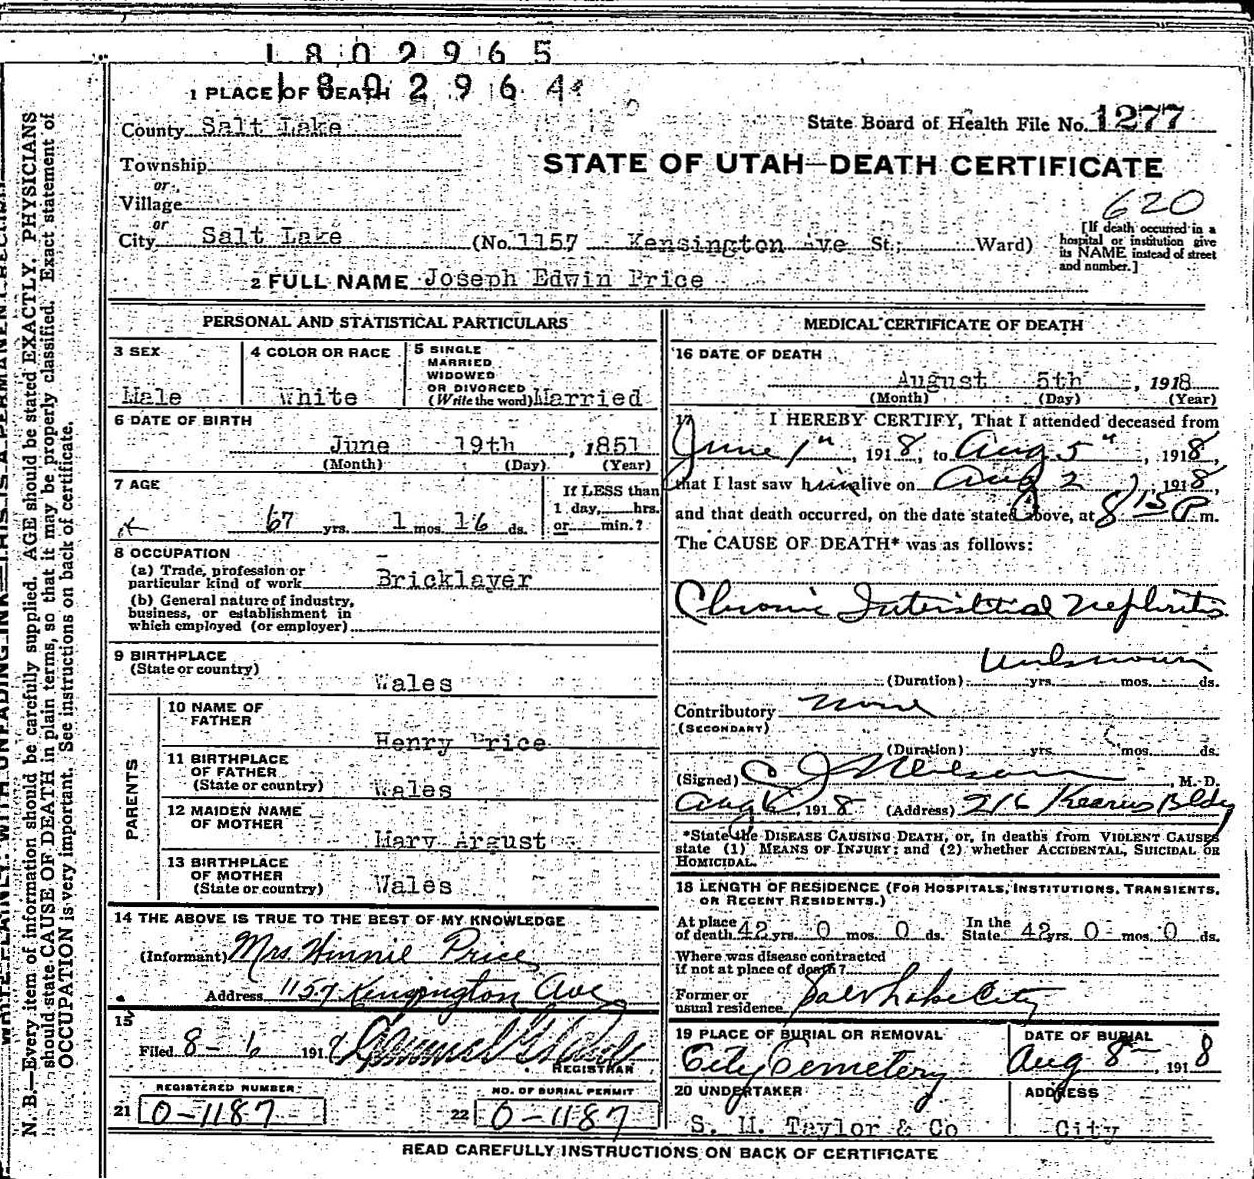 1802965
1802964
1 PLACE OF DEATH
County Salt Lake
State Board of Health File No. 1277
Township
STATE OF UTAH—DEATH CERTIFICATE
or
Village
620
or
City Salt Lake (No. 1157 Kensington Ave St.; Ward)
[If death occurred in a
hospital or institution give
its NAME instead of street
and number.]
2 FULL NAME Joseph Edwin Price
PERSONAL AND STATISTICAL PARTICULARS
3 SEX
Male
4 COLOR OR RACE
White
5 SINGLE
MARRIED
WIDOWED
OR DIVORCED
(Write the word) Married
6 DATE OF BIRTH
June 19th, 1851
(Month) (Day) (Year)
7 AGE
67 yrs. 1 mos. 16 ds.
If LESS than
1 day, hrs.
or min.?
8 OCCUPATION
(a) Trade, profession or
particular kind of work Bricklayer
(b) General nature of industry,
business, or establishment in
which employed (or employer)
9 BIRTHPLACE
(State or country)
Wales
PARENTS
10 NAME OF
FATHER
Henry Price
11 BIRTHPLACE
OF FATHER
(State or country)
Wales
12 MAIDEN NAME
OF MOTHER
Mary Argust
13 BIRTHPLACE
OF MOTHER
(State or country)
Wales
14 THE ABOVE IS TRUE TO THE BEST OF MY KNOWLEDGE
(Informant) Mrs. Winnie Price
Address 1157 Kensington Ave
15
Filed 8-6 191
REGISTRAR
REGISTERED NUMBER
21 0-1187
NO. OF BURIAL PERMIT
22 0-1187
MEDICAL CERTIFICATE OF DEATH
16 DATE OF DEATH
August 5th, 1918
(Month) (Day) (Year)
17 I HEREBY CERTIFY, That I attended deceased from
June 1st, 1918, to Aug 5th, 1918,
that I last saw him alive on Aug 2, 1918,
and that death occurred, on the date stated above, at 8 15 P m.
The CAUSE OF DEATH* was as follows:
Chronic Interstitial Nephritis
Unknown
(Duration) yrs. mos. ds.
Contributory None
(SECONDARY)
(Duration) yrs. mos. ds.
(Signed) C J Neilson, M. D.
Aug 6, 1918 (Address) 216 Kearns Bldg
*State the DISEASE CAUSING DEATH, or, in deaths from VIOLENT CAUSES
state (1) MEANS OF INJURY; and (2) whether ACCIDENTAL, SUICIDAL OR
HOMICIDAL.
18 LENGTH OF RESIDENCE (FOR HOSPITALS, INSTITUTIONS, TRANSIENTS,
OR RECENT RESIDENTS.)
At place
of death 42 yrs. 0 mos. 0 ds. In the
State 42 yrs. 0 mos. 0 ds.
Where was disease contracted
if not at place of death?
Former or
usual residence Salt Lake City
19 PLACE OF BURIAL OR REMOVAL
City Cemetery
DATE OF BURIAL
Aug 8th, 1918
20 UNDERTAKER
S. M. Taylor & Co
ADDRESS
City
READ CAREFULLY INSTRUCTIONS ON BACK OF CERTIFICATE
N. B.—Every item of information should be carefully supplied. AGE should be stated EXACTLY. PHYSICIANS
should state CAUSE OF DEATH in plain terms, so that it may be properly classified. Exact statement of
OCCUPATION is very important. See instructions on back of certificate.